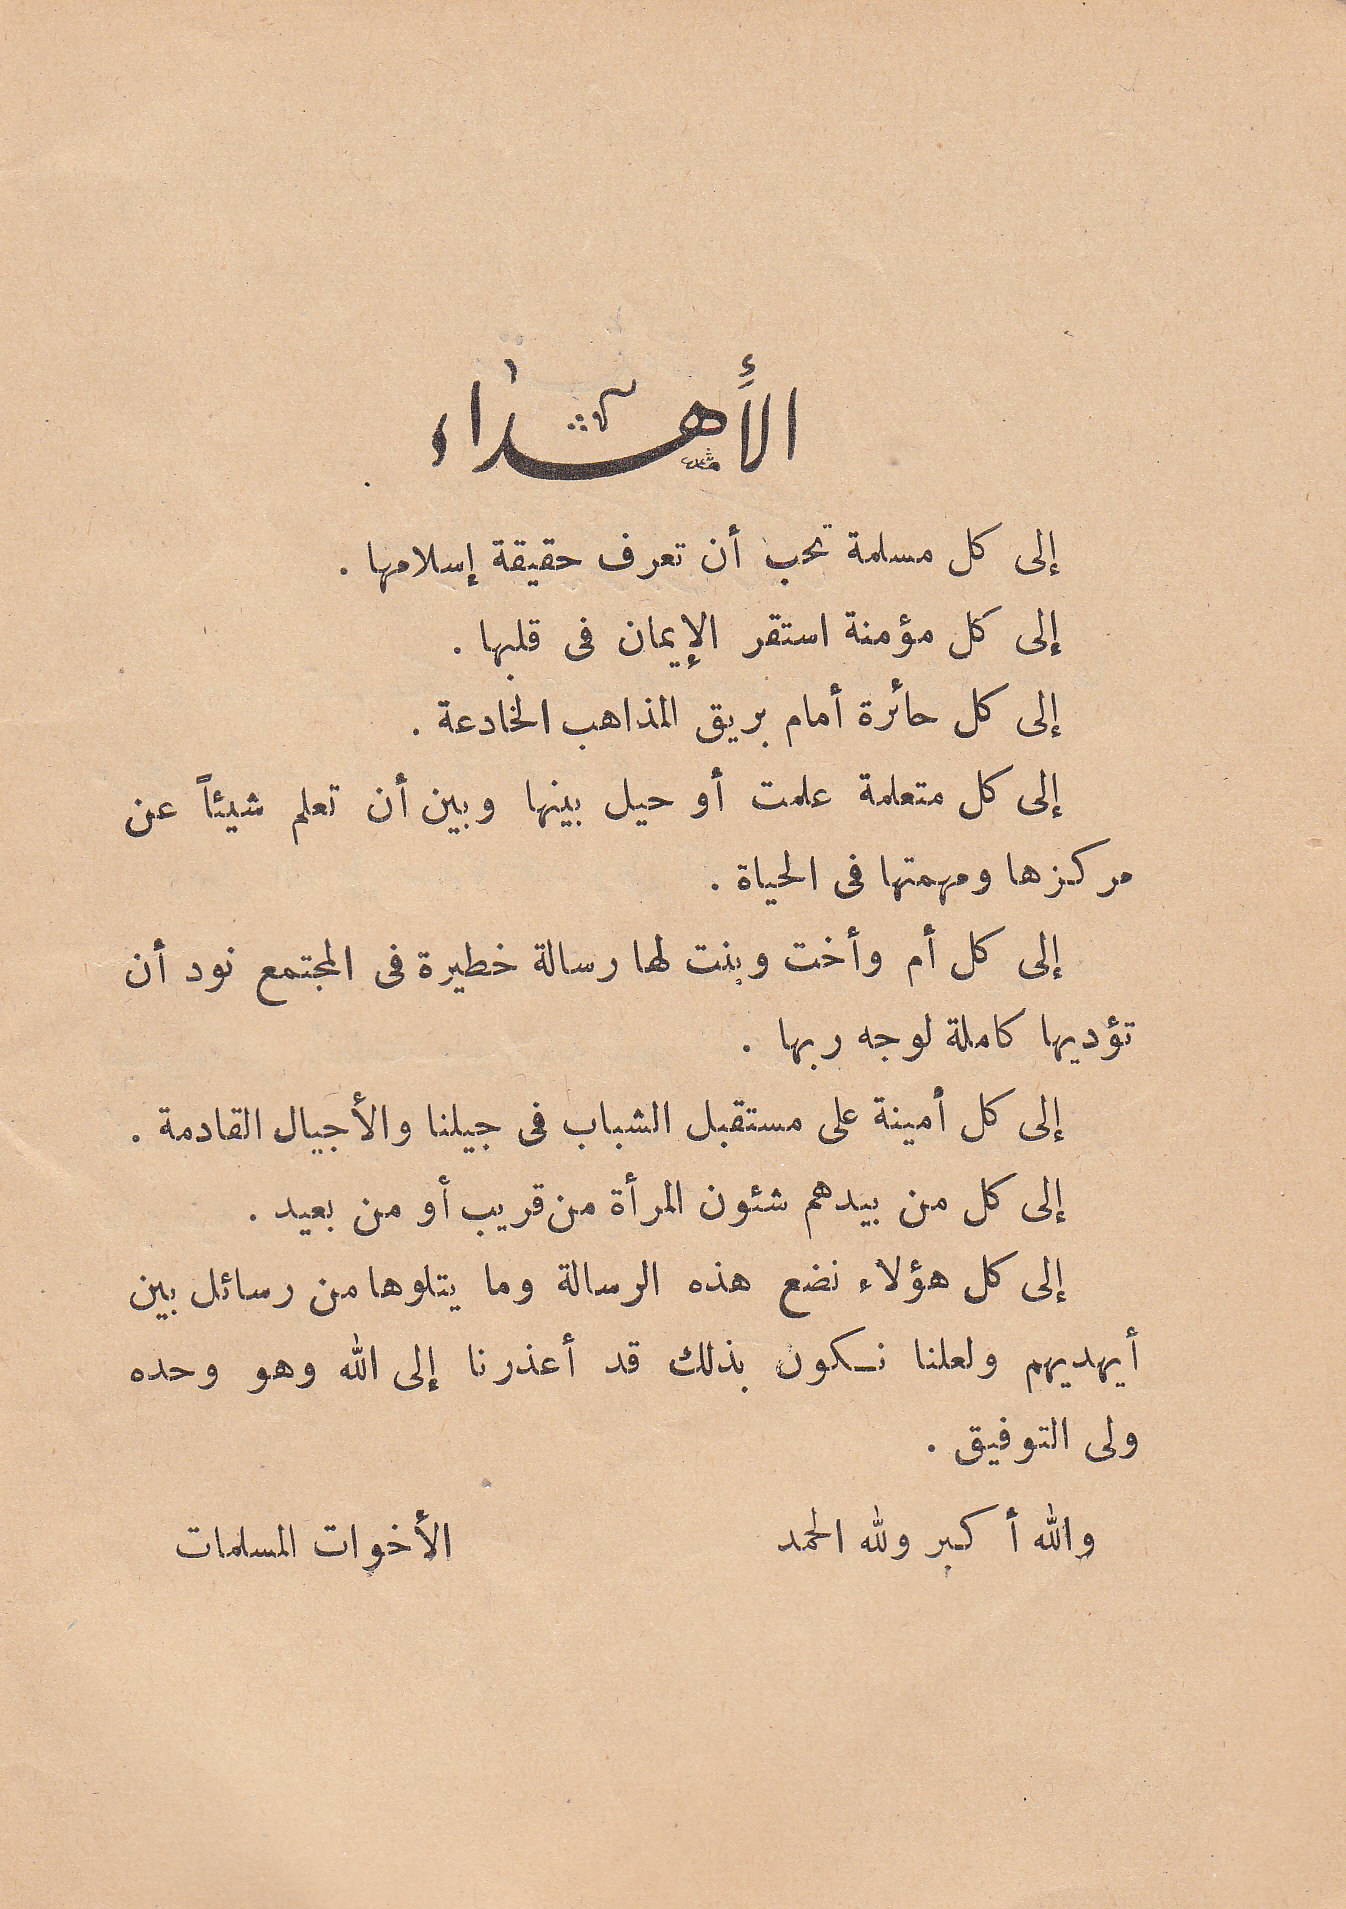 الأهداء
إلى كل مسلمة تحب أن تعرف حقيقة إسلامها .
إلى كل مؤمنة استقر الإيمان فى قلبها .
إلى كل حائرة أمام بريق المذاهب الخادعة .
إلى كل متعلمة علمت أو حيل بينها وبين أن تعلم شيئاً عن
مركزها ومهمتها فى الحياة .
إلى كل أم وأخت وبنت لها رسالة خطيرة فى المجتمع نود أن
تؤديها كاملة لوجه ربها .
إلى كل أمينة على مستقبل الشباب فى جيلنا والأجيال القادمة .
إلى كل من بيدهم شئون المرأة من قريب أو من بعيد .
إلى كل هؤلاء نضع هذه الرسالة وما يتلوها من رسائل بين
أيهديهم ولعلنا نكون بذلك قد أعذرنا إلى الله وهو وحده
ولى التوفيق .
والله أكبر ولله الحمد
الأخوات المسلمات